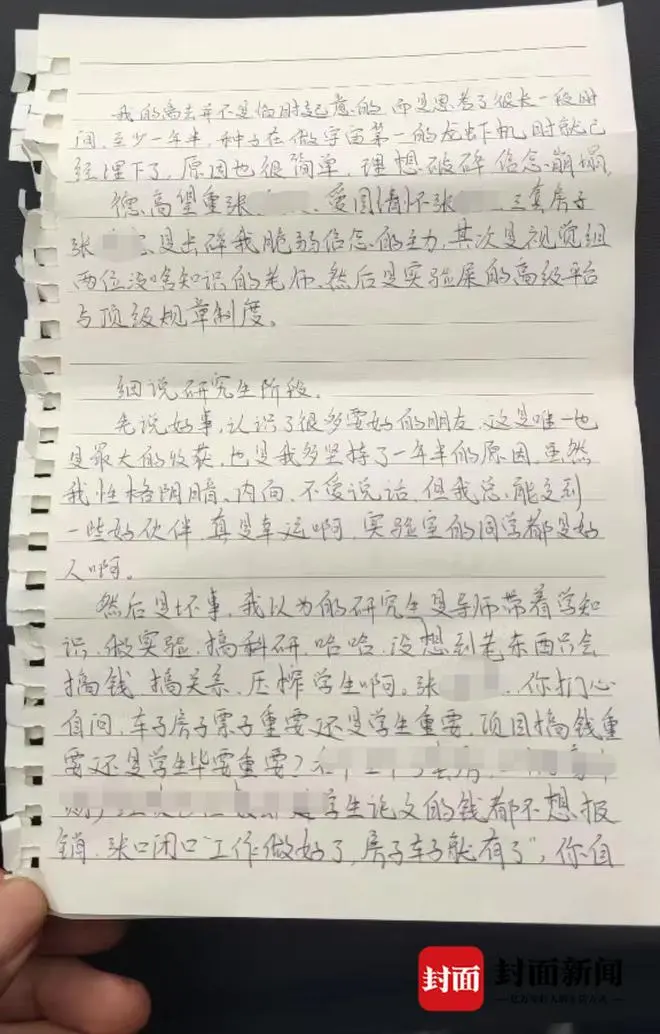 我的离去并不是临时起意的 而是思考了很长一段时
间,至少一年半,种子在做宇宙第一的龙虾机时就已
经埋下了,原因也很简单,理想破碎 信念崩塌,
德高望重张 、爱国情怀张 、三套房子
张 是击碎我脆弱信念的主力,其次是视觉组
两位没啥知识的老师,然后是实验室的高级平台
与顶级规章制度。
细说研究生阶段,
先说好事,认识了很多要好的朋友,这是唯一也
是最大的收获,也是我多坚持了一年半的原因,虽然
我性格阴暗、内向、不爱说话,但我总能交到
一些好伙伴,真是幸运啊,实验室的同学都是好
人啊。
然后是坏事,我以为的研究生是导师带着学知
识,做实验,搞科研,哈哈,没想到老东西只会
搞钱、搞关系、压榨学生啊。张 ,你扪心
自问,车子房子票子重要还是学生重要,项目搞钱重
要还是学生毕业重要?
学生论文的钱都不想报
销,张口闭口“工作做好了,房子车子就有了”,你自
封面
封面新闻